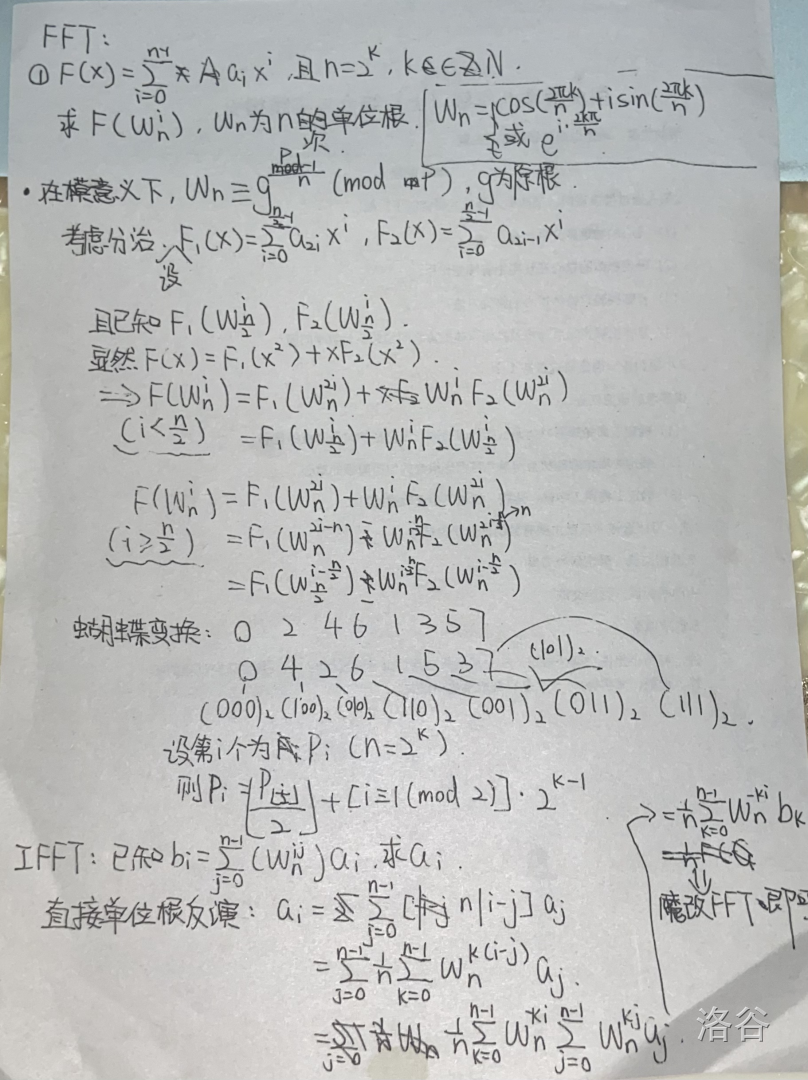 FFT:
① F(x)=∑_{i=0}^{n-1} a_i x^i, 且 n=2^k, k∈N.
求 F(W_n^i), W_n为n次的单位根.
W_n = { cos(2πk/n)+i sin(2πk/n)
或 e^{i·2kπ/n}
· 在模意义下, W_n ≡ g^{(P-1)/n} (mod P), g为原根.
考虑分治. 设 F_1(x)=∑_{i=0}^{n/2-1} a_{2i} x^i, F_2(x)=∑_{i=0}^{n/2-1} a_{2i-1} x^i
且已知 F_1(W_{n/2}^i), F_2(W_{n/2}^i).
显然 F(x)=F_1(x^2)+xF_2(x^2).
⇒ F(W_n^i)=F_1(W_n^{2i})+W_n^i F_2(W_n^{2i})
(i<n/2) =F_1(W_{n/2}^i)+W_n^i F_2(W_{n/2}^i)
F(W_n^i)=F_1(W_n^{2i})+W_n^i F_2(W_n^{2i})
(i≥n/2) =F_1(W_n^{2i-n})-W_n^{i-n/2}F_2(W_n^{2i-n})
=F_1(W_{n/2}^{i-n/2})-W_n^{i-n/2}F_2(W_n^{i-n/2})
蝴蝶变换: 0 2 4 6 1 3 5 7
0 4 2 6 1 5 3 7 (101)_2.
(000)_2 (100)_2 (010)_2 (110)_2 (001)_2 (011)_2 (111)_2.
设第i个为 P_i (n=2^k).
则P_i=⌊P_{⌊i/2⌋}/2⌋+[i≡1(mod 2)]·2^{k-1}
IFFT: 已知 b_i=∑_{j=0}^{n-1}(W_n^{ij})a_i. 求 a_i.
直接单位根反演: a_i=∑_{j=0}^{n-1}[n|i-j] a_j
=∑_{j=0}^{n-1} 1/n ∑_{k=0}^{n-1} W_n^{k(i-j)} a_j.
=1/n ∑_{k=0}^{n-1} W_n^{-ki} ∑_{j=0}^{n-1} W_n^{kj} a_j.
=1/n ∑_{k=0}^{n-1} W_n^{-ki} b_k
魔改FFT即可
洛谷